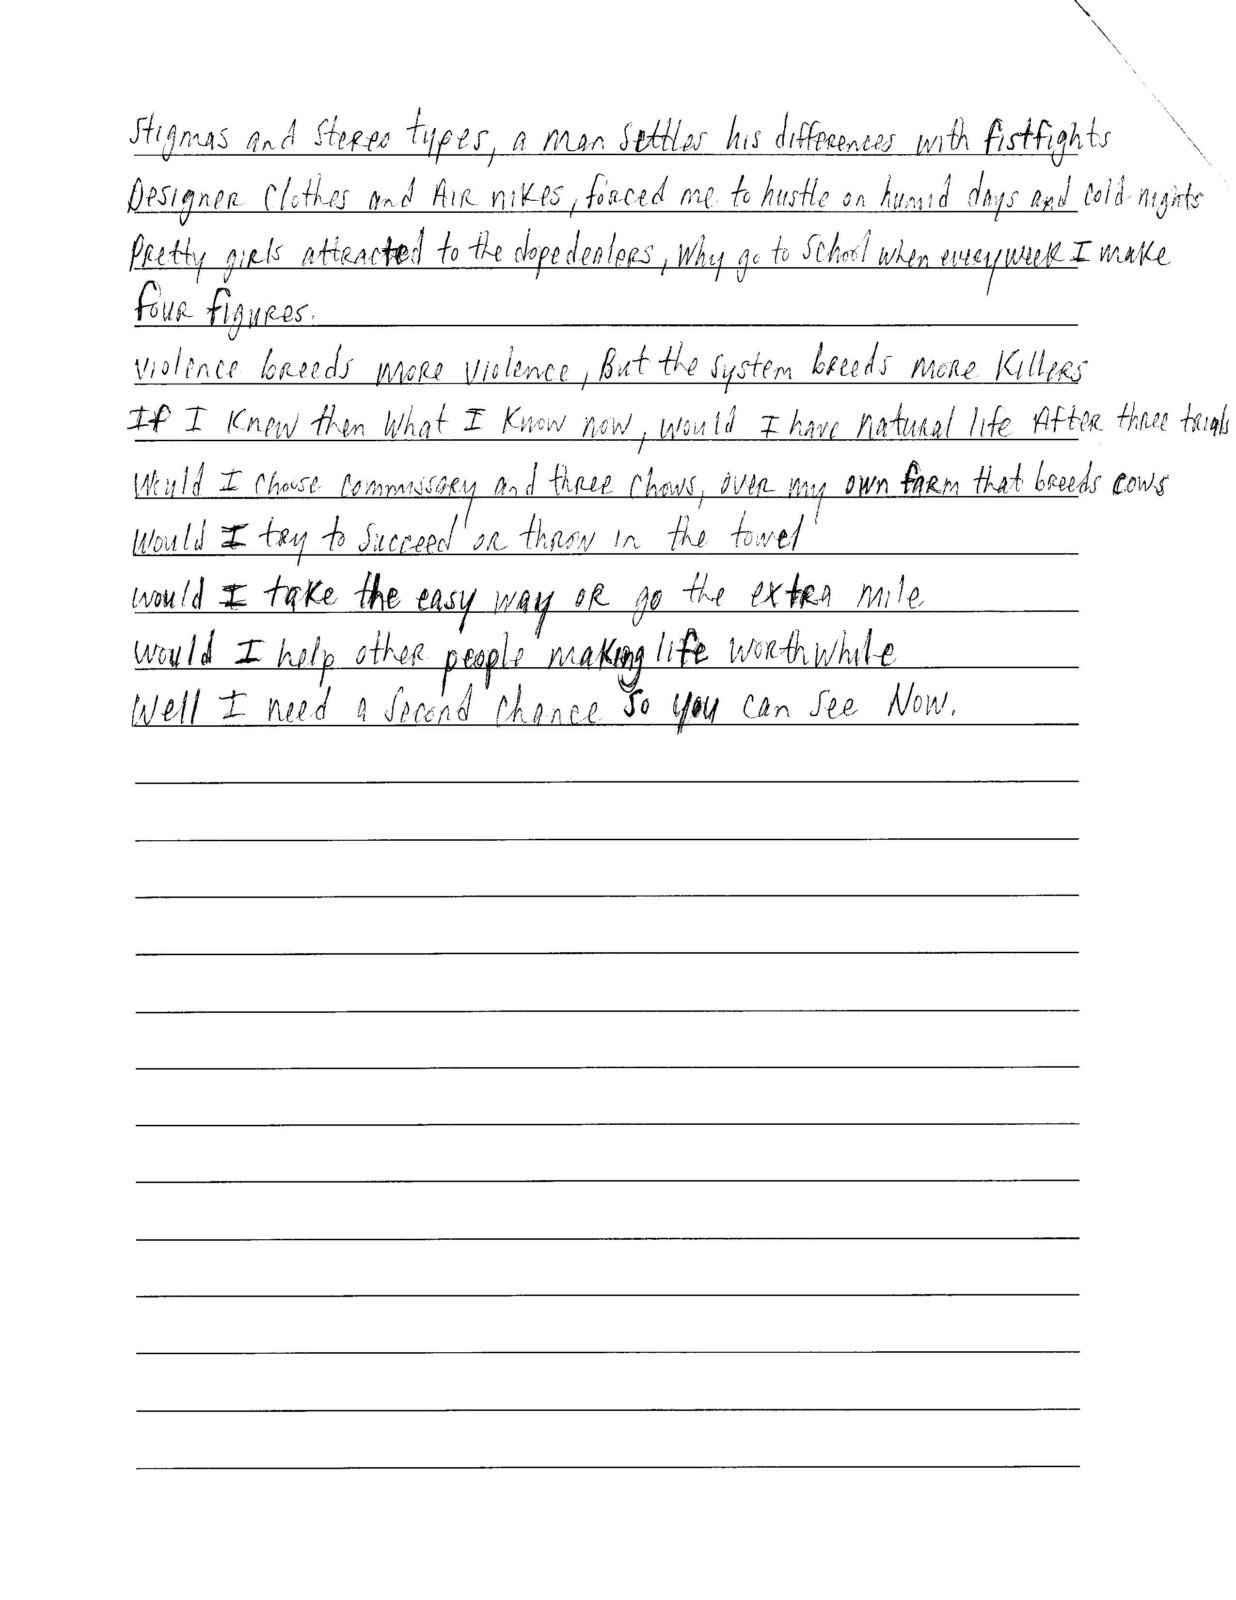 Stigmas and Stereo types, a man Settles his differences with fistfights
Designer Clothes and Air nikes, forced me to hustle on humid days and cold nights
Pretty girls attracted to the dopedealers, Why go to School when everyweek I make
four figures.
violence breeds more violence, But the system breeds more Killers
If I Knew then What I Know now, would I have natural life After three trials
Would I choose commissary and three chows, over my own farm that breeds cows
Would I try to Succeed or throw in the towel
would I take the easy way or go the extra mile
would I help other people making life worthwhile
Well I need a Second Chance So you can see Now.